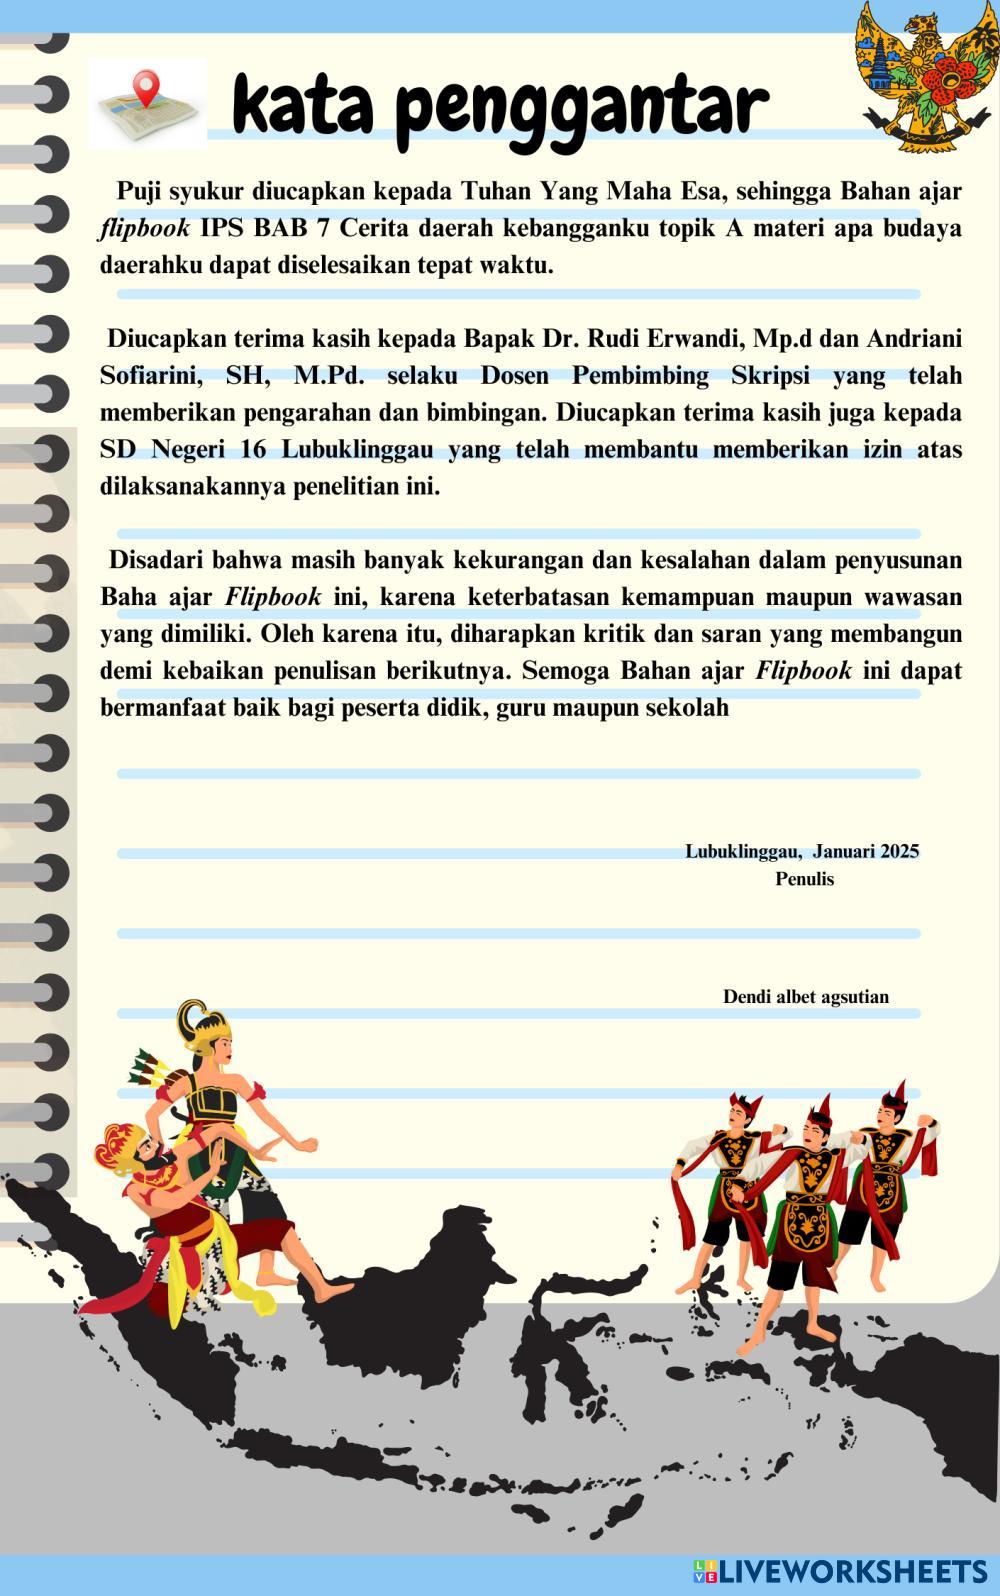 kata penggantar
Puji syukur diucapkan kepada Tuhan Yang Maha Esa, sehingga Bahan ajar
flipbook IPS BAB 7 Cerita daerah kebangganku topik A materi apa budaya
daerahku dapat diselesaikan tepat waktu.
Diucapkan terima kasih kepada Bapak Dr. Rudi Erwandi, Mp.d dan Andriani
Sofiarini, SH, M.Pd. selaku Dosen Pembimbing Skripsi yang telah
memberikan pengarahan dan bimbingan. Diucapkan terima kasih juga kepada
SD Negeri 16 Lubuklinggau yang telah membantu memberikan izin atas
dilaksanakannya penelitian ini.
Disadari bahwa masih banyak kekurangan dan kesalahan dalam penyusunan
Baha ajar Flipbook ini, karena keterbatasan kemampuan maupun wawasan
yang dimiliki. Oleh karena itu, diharapkan kritik dan saran yang membangun
demi kebaikan penulisan berikutnya. Semoga Bahan ajar Flipbook ini dapat
bermanfaat baik bagi peserta didik, guru maupun sekolah
Lubuklinggau, Januari 2025
Penulis
Dendi albet agsutian
LIVE LIVEWORKSHEETS